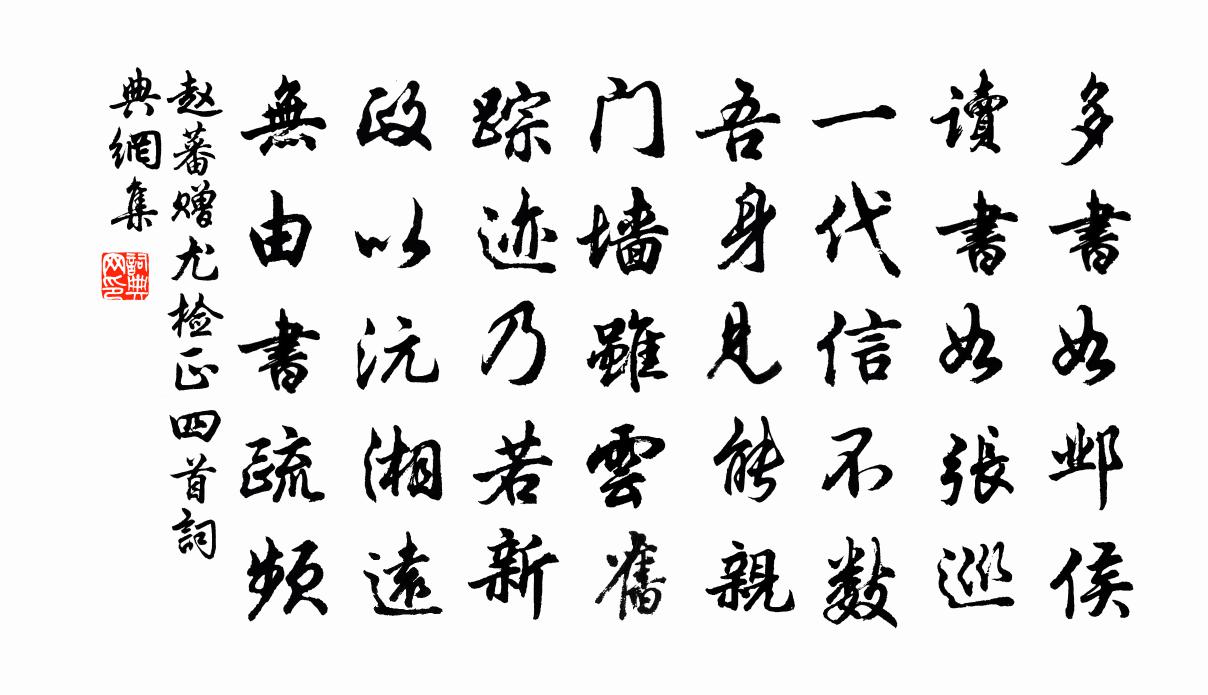 多書如邺侯
讀書如張巡
一代信不數
吾身見能親
门墙雖雲舊
踪迹乃若新
政以沅湘遠
無由書疏頻
赵蕃赠尤检正四首詞
典網集
詞典网印